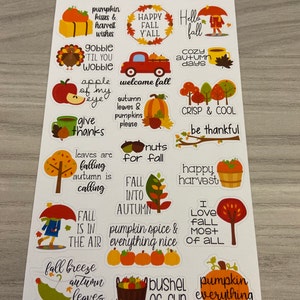 pumpkin
kisses &
harvest
wishes
HAPPY
FALL
Y'ALL
Hello
fall
gobble
'TIL YOU
WOBBLE
welcome fall
COZY
autumn
DAYS
apple
of my
eye
autumn
leaves &
pumpkins
please
CRISP & COOL
give
thanks
nuts
for fall
be thankful
leaves are
falling
autumn is
calling
FALL
INTO
AUTUMN
happy
harvest
FALL
IS IN
THE AIR
pumpkin spice &
everything nice
I
LOVE
FALL
MOST
OF ALL
fall breeze
autumn
leaves
bushel
of fun
pumpkin
everything